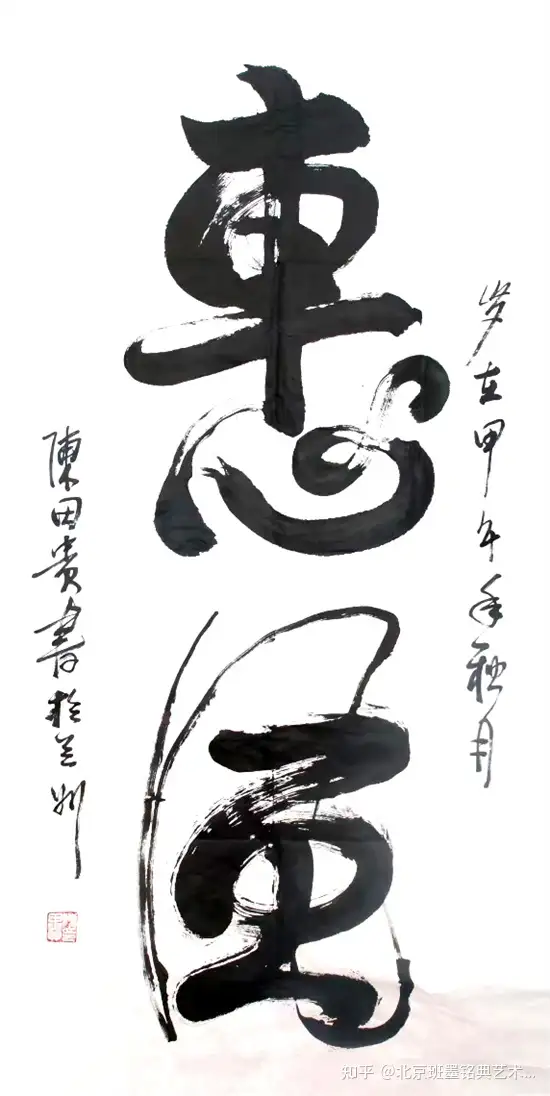 惠風
岁在甲午年秋月
陳田贵書於兰州
知乎 @北京班墨铭典艺术...